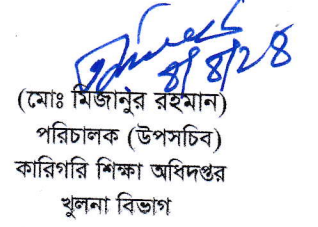 ৪/৪/২৪
(মোঃ মিজানুর রহমান)
পরিচালক (উপসচিব)
কারিগরি শিক্ষা অধিদপ্তর
খুলনা বিভাগ